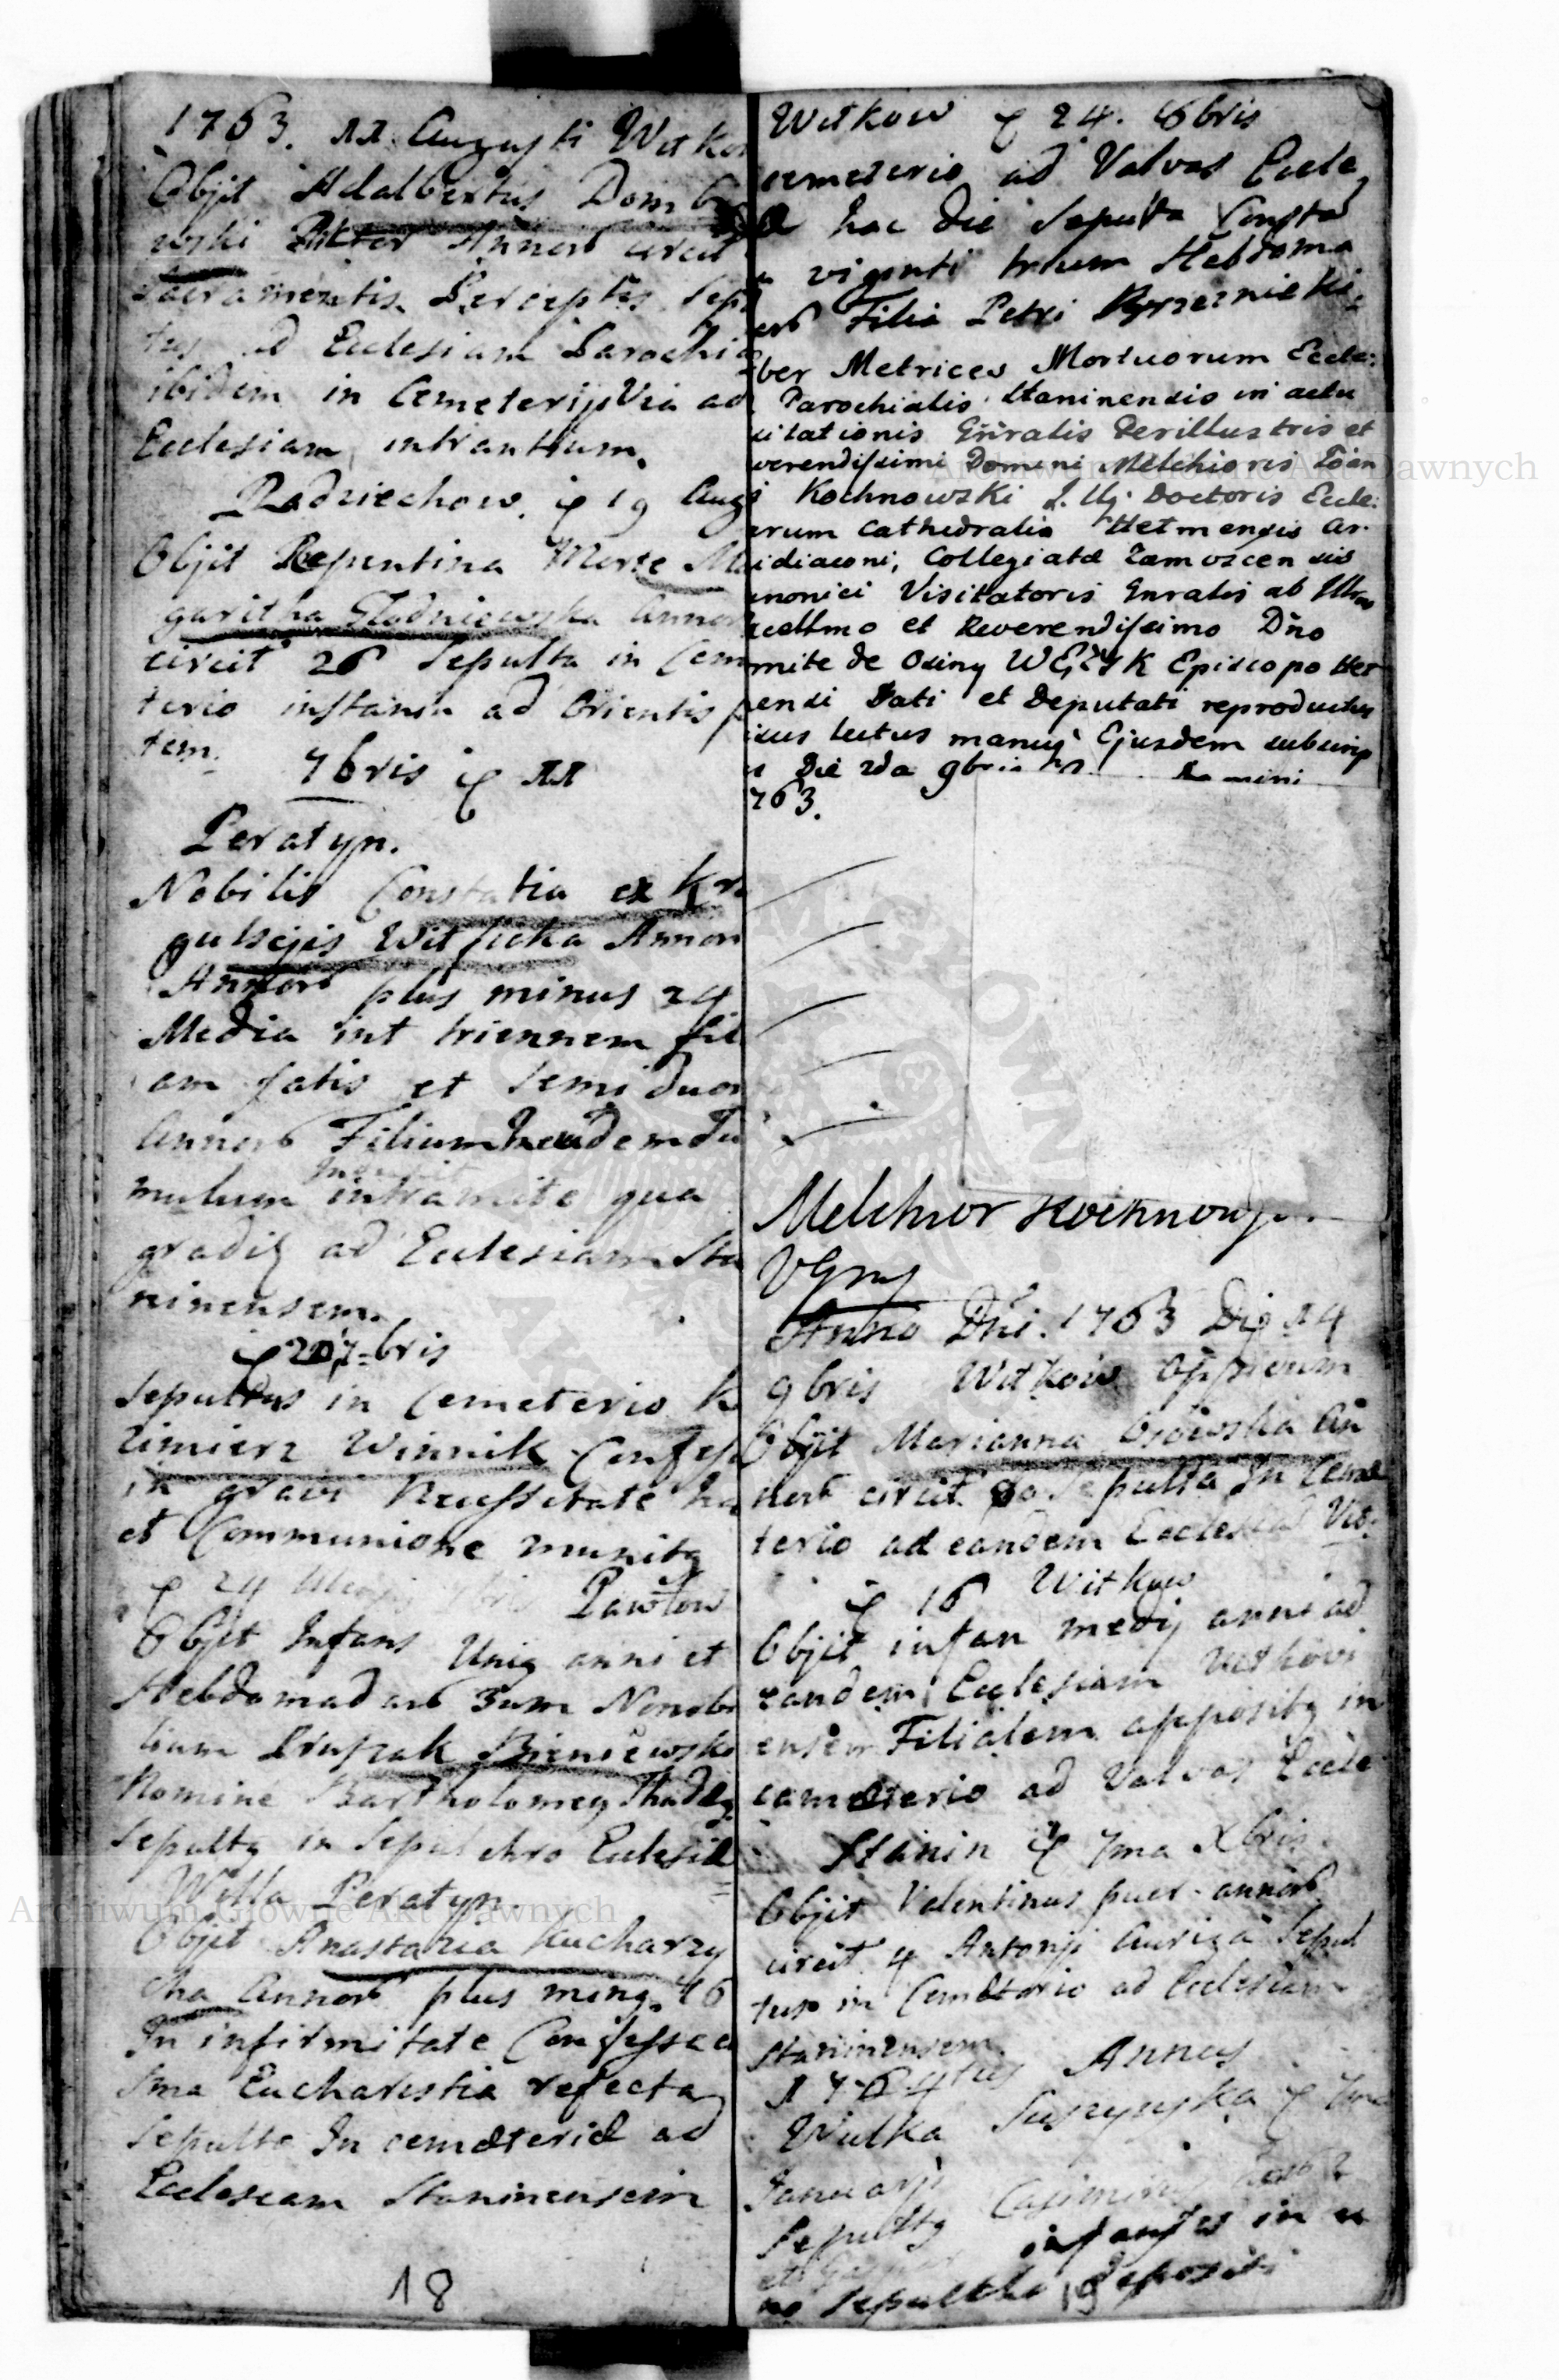 1763. 11 Augusti Witkow
Objit Adalbertus Domb
wski Pictor Annorũ circit
Sacramentis Perceptis Sepul
tus ad Ecclesiam Parochia
ibidem in Cemeterij Via ad
Ecclesiam intrantium.
Radziechow. ę 19 Augs
Objit Repentina Morte Ma
garitha Glodniewska Annor
circit 26 Sepulta in Cem
terio instanu ad Orientis p
tem.
7bris ę 11
Peratyn.
Nobilis Constatia ex Kra
gulscijis Witficka Annor
Annorũ plus minus 24
Media int triennem fili
am satis et Semi duor
Annorũ Filium In eadem Tu
mulum intramite qua
gradiɋ ad Ecclesiam Sta
ninensem.
ę 20 7-bris
Sepultus in Cemeterio K
zimierz Winnik Confes
in gravi Necessitate
et Communione munitɋ
ę 24 Pawłow
Objit Infans Uniɋ anni et
Hebdomadarũ 3um Nonobi
lium Krupzak Bieniewski
Nomine Bartholomeɋ Thadeɋ
Sepultɋ in Sepulchro Ecclesiæ
Willa Peratyn
Objit Anastazia Kucharzy
cha Annorũ plus minɋ 46
In infirmitate Confessa
Sma Eucharistia refecta
Sepulta In cemæteriæ ad
Ecclesiam Staninensem
18
Witkow ę 24. 8bris
cemeterio ad Valvas Eccle
æ hac die Sepulta Consta
a viginti trium Hebdoma
arũ Filia Petri Brzeznicki
ber Metrices Mortuorum Eccle:
Parochialis Staninensis in actu
sitationis Gñralis Perillustris et
verendissimi Domini Melchioris Ioan
Kochnowski J. Uj. Doctoris Eccle:
arum Cathedralis Helmensis Ar-
idiaconi, Collegiatæ Zamoscen sis
anonici Visitatoris Gnralis ab Illmo
xcellmo et Reverendissimo Dño
mite de Osiny WĘŻYK Episcopo Hel
ensi Dati et Deputati reproductus
isus lectus manuq Ejusdem subscrip
Die 2da 9bris Domini
763.
Melchior Kochnowsk
VGnlis
Anno Dñi. 1763 Die 14
9bris Witkow Oppidum
Objit Marianna Osowska An
norũ circit 80 Sepulta In Ceme
terio ad eandem Ecclesia Vit:
ę 16 Witkow
Objit infan medij anni ad
eandem Ecclesiam Witkovi
ensem Filialem appositɋ in
cemæterio ad Valvas Eccle
Stanin ę 7ma Xbris
Objit Valentinus puer annorũ
circit 4 Antonij Auriga Sepul
tus in Cemæterio ad Ecclesiam
Staninensem.
1764tus Annus
Wulka Suszynska ę
Januarij
Sepultɋ Casimirus
et infantes in u
no Sepulchro depositi
19
Archiwum Główne Akt Dawnych